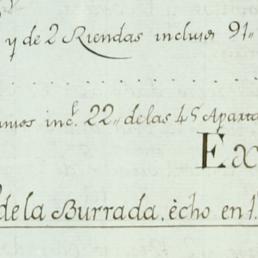 y de 2 Riendas inclusos 91"
incl. 22,, de las 4s Aparta
Ex
de la Burrada, ècho en 1.